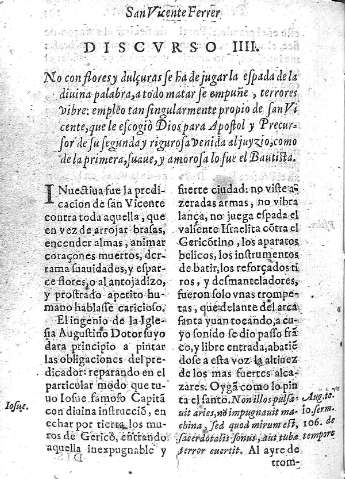 San Vicente Ferrer
DISCVRSO IIII.
No con flores y dulçuras se ha de jugar la espada de la
diuina palabra, a todo matar se empuñe, terrores
vibre: empleo tan singularmente propio de san Vi
cente, que le escogiò Dios para Apostol y Precur-
sor de su segunda y rigurosa venida al juyzio, como
de la primera, suaue, y amorosa lo fue el Bautista.
INuectiua fue la predi-
cacion de san Vicente
contra toda aquella, que
en vez de arrojar brasas,
encender almas, animar
coraçones muertos, der-
rama suauidades, y espar-
ce flores, o al antojadizo,
y prostrado apetito hu-
mano hablasse caricioso.
El ingenio de la Igle-
sia Augustino Dotor suyo
dara principio a pintar
las obligaciones del pre-
dicador: reparando en el
particular modo que tu-
uo Iosue famoso Capitã
con diuina instrucciõ, en
echar por tierra los mu-
ros de Gericò, entrando
aquella inexpugnable y
Iosue.
fuerte ciudad: no viste a-
zeradas armas, no vibra
lança, no juega espada el
valiente Israelita cõtra el
Gericõtino, los aparatos
belicos, los instrumentos
de batir, los reforçados ti
ros, y desmanteladores,
fueron solo vnas trompe-
tas, que delante del arca
santa yuan tocando, a cu-
yo sonido se dio passo frã
co, y libre entrada, abatiẽ
dose a esta voz la altiuez
de los mas fuertes alca-
zares. Oygã como lo pin
ta el santo. Non illos pulsa-
uit aries, no impugnauit ma-
china, sed quod mirum est,
sacerdotalis sonus, aut tubæ
terror euertit. Al ayre de
trom-
Aug. to.
10. serm.
106. de
tempore